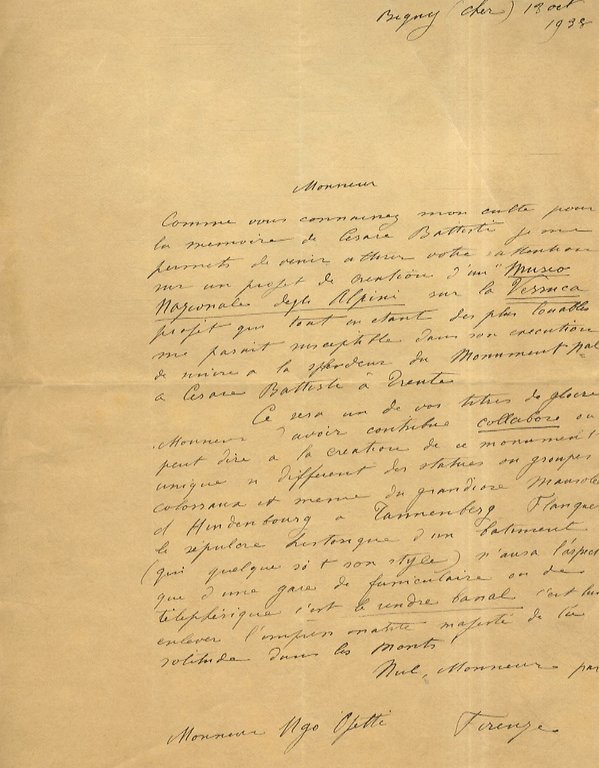 Bigny (Cher) 13 oct
1938
Monsieur
Comme vous connaissez mon culte pour
la memoire de Cesare Battisti je me
permets de venir attirer votre attention
sur un projet de creation d'un "Museo
Nazionale degli Alpini sur la Verruca
projet qui tout en etant des plus louables
me parait susceptible dans son execution
de nuire a la splendeur du Monument Nal
a Cesare Battisti à Trente
Ce sera un de vos titres de gloire
Monsieur d'avoir contribué collaboré on
peut dire a la creation de ce monument
unique si different des statues ou groupes
colossaux et meme du grandiose Mausolé
d'Hindenbourg a Tannenberg Flanquer
le sépulcre historique d'un batiment
(qui quelque soit son style) n'aura l'aspect
que d'une gare de funiculaire ou de
téléphérique c'est le rendre banal c'est lui
enlever l'impressionante majesté de la
solitude dans les monts
Nul, Monsieur par
Monsieur Ugo Ojetti Firenze